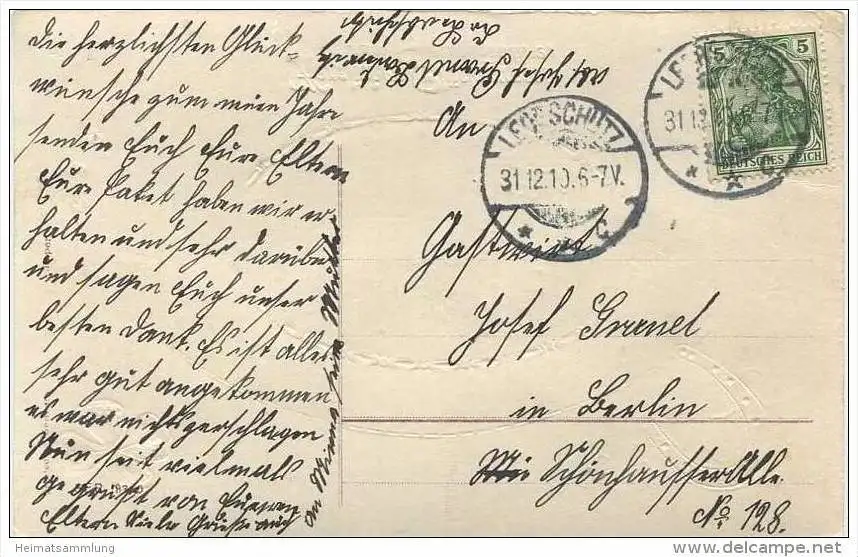 die herzlichsten Glück-
wünsche zum neuen Jahre
senden Euch Eure Eltern
Eure Paket haben wir er
halten und sehr darüber
und sagen Euch unser
besten Dank. Es ist alles
sehr gut angekommen
es war nichts zerschlagen
Nun seit vielmals
gegrüßt von Eueren
Eltern Viele Grüße auch
an
Mutter
An
Gastwirt
Josef Granel
in Berlin
Schönhausser Alle.
No. 128.
LEOBSCHÜTZ
31.12.10.6-7V.
* c
5 5
DEUTSCHES REICH
31.12
Heimatsammlung
delcampe.net